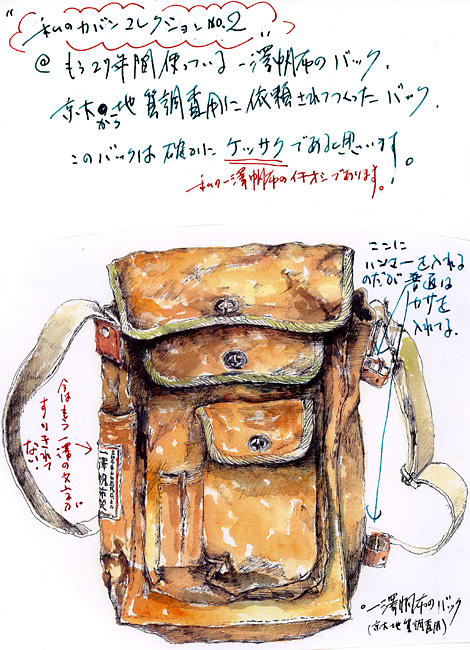 "私のカバンコレクションNo.2"
@ もう27年間使っている一澤帆布のバック.
京大から地質調査用に依頼されてつくったバック.
このバックは確かにケッサクであると思います。
私の一澤帆布のイチオシであります。!
ここに
ハンマーを入れる
のだが普通は
カサを
入れてる.
今はもう一澤の文字が
すりきれて
ない!
一澤帆布製
一澤帆布のバック
(京大地質調査用)